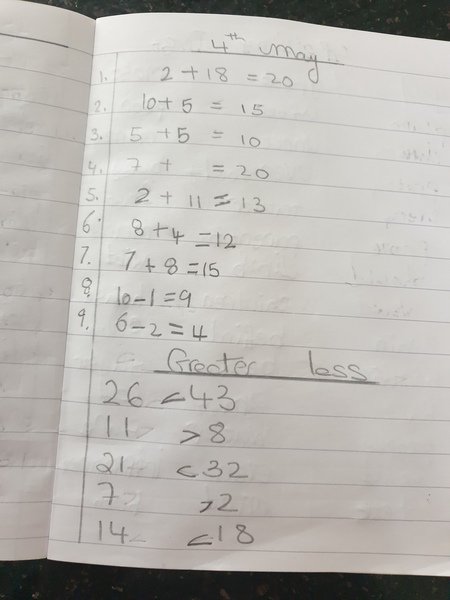 4th may
1. 2 + 18 = 20
2. 10 + 5 = 15
3. 5 + 5 = 10
4. 7 + = 20
5. 2 + 11 = 13
6. 8 + 4 = 12
7. 7 + 8 = 15
8. 10 - 1 = 9
9. 6 - 2 = 4
Greater less
26 < 43
11 > 8
21 < 32
7 > 2
14 < 18